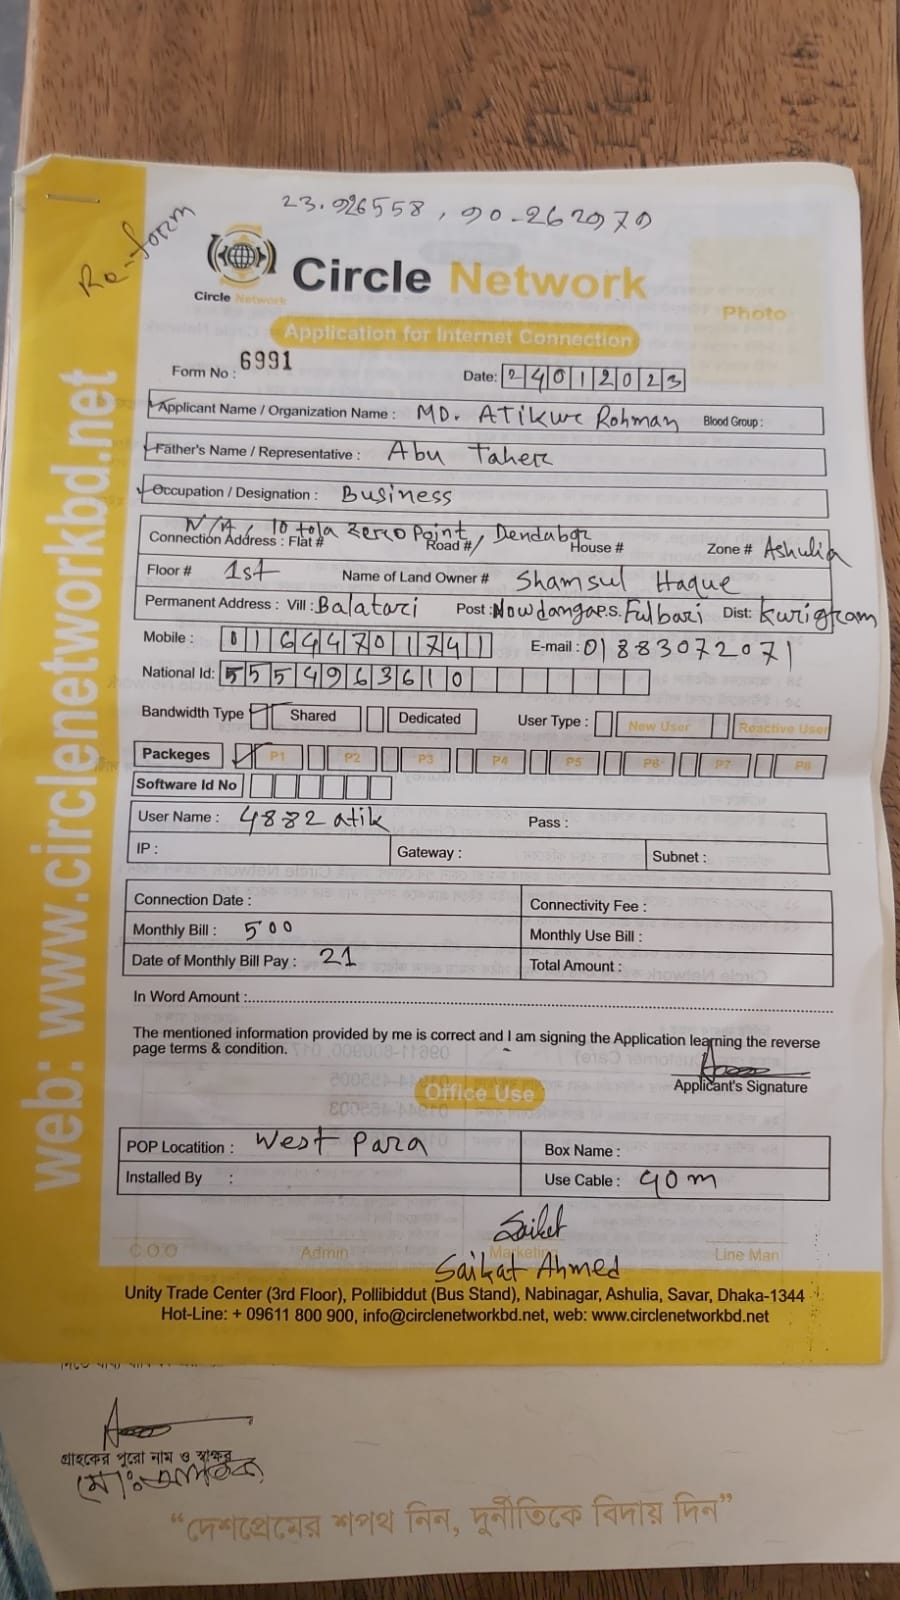 23.926558, 90.262979
Re-form
Circle Network
Circle Network
Photo
Application for Internet Connection
Form No : 6991
Date: 24012023
Applicant Name / Organization Name : MD. Atikur Rohman Blood Group :
Father's Name / Representative : Abu Taher
Occupation / Designation : Business
N/A, 10 tola Zero Point, Dendabor
Connection Address : Flat # Road # House # Zone # Ashulia
Floor # 1st Name of Land Owner # Shamsul Haque
Permanent Address : Vill : Balatari Post : Nowdanga P.S. Fulbari Dist: Kurigram
Mobile : 01644701741 E-mail : 01883072071
National Id: 5554963610
Bandwidth Type Shared Dedicated User Type : New User Reactive User
Packeges P1 P2 P3 P4 P5 P6 P7 P8
Software Id No
User Name : 4882 atik Pass :
IP : Gateway : Subnet :
Connection Date : Connectivity Fee :
Monthly Bill : 500 Monthly Use Bill :
Date of Monthly Bill Pay : 21 Total Amount :
In Word Amount :
The mentioned information provided by me is correct and I am signing the Application learning the reverse
page terms & condition.
Applicant's Signature
Office Use
POP Locatition : West Para Box Name :
Installed By : Use Cable : 90m
Saikat
C.O.O Admin Marketing Line Man
Saikat Ahmed
Unity Trade Center (3rd Floor), Pollibiddut (Bus Stand), Nabinagar, Ashulia, Savar, Dhaka-1344
Hot-Line: + 09611 800 900, info@circlenetworkbd.net, web: www.circlenetworkbd.net
web: www.circlenetworkbd.net
গ্রাহকের পুরো নাম ও স্বাক্ষর
“দেশপ্রেমের শপথ নিন, দুর্নীতিকে বিদায় দিন”